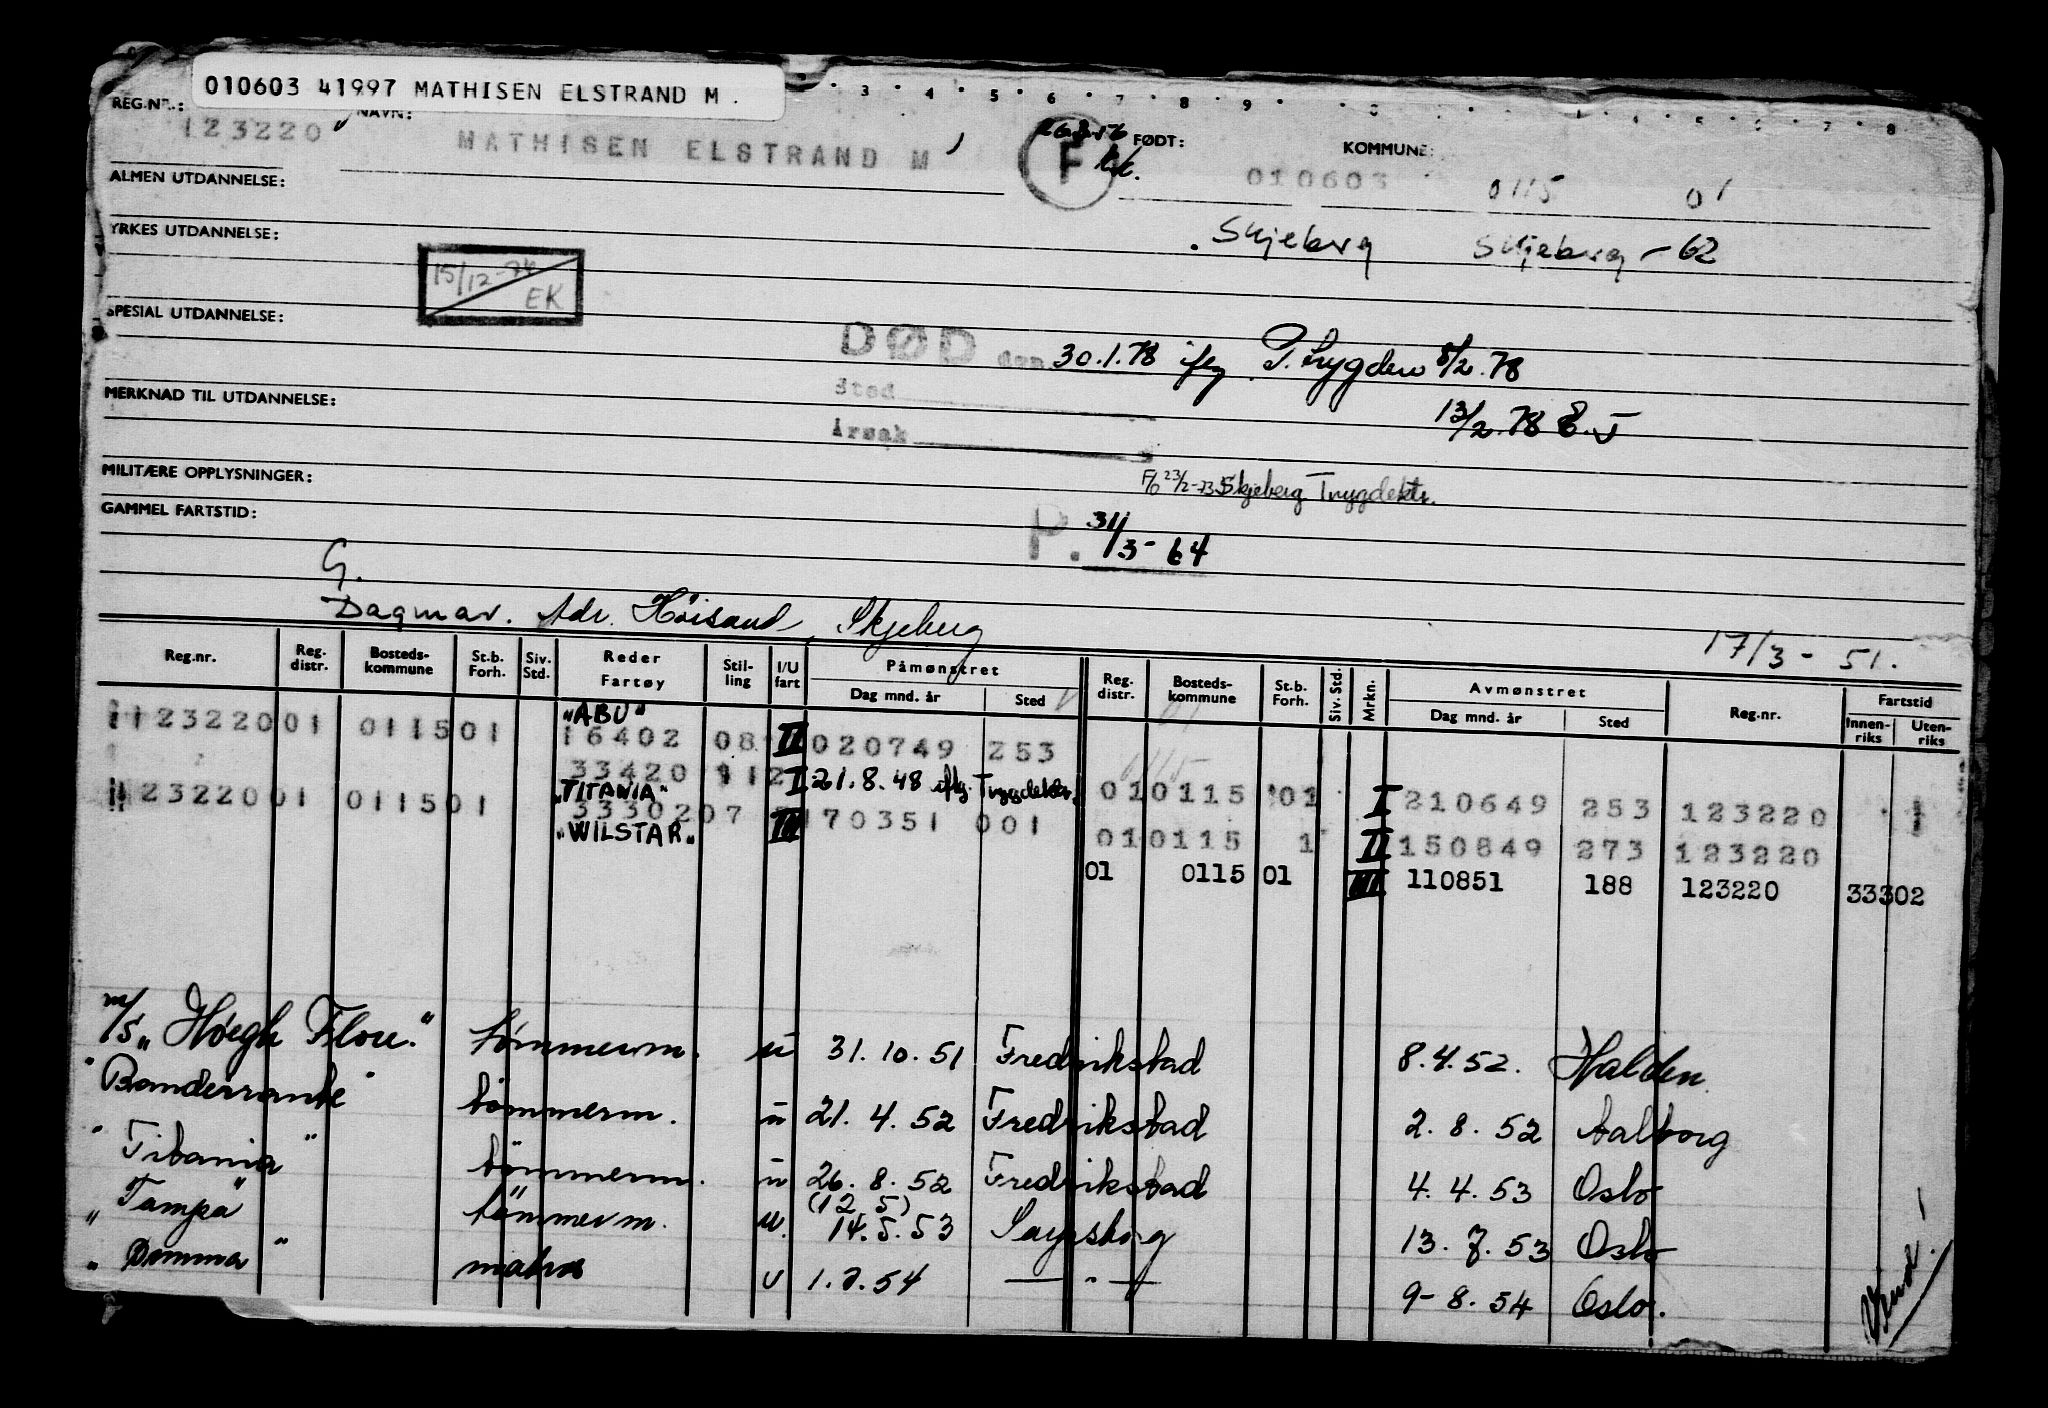 010603 41997 MATHISEN ELSTRAND M.
3 4 5 6 7 8 9
REG.NR.: 123220 NAVN: MATHISEN ELSTRAND M F FØDT: 010603 KOMMUNE: 0115 01
ALMEN UTDANNELSE:
YRKES UTDANNELSE: Skjeberg Skjeberg - 62
15/12-74 EK
SPESIAL UTDANNELSE:
DØD den 30.1.78 ifлg P. trygden 8/2.78
Sted
MERKNAD TIL UTDANNELSE: 13/2.78 E.J
Årsak
MILITÆRE OPPLYSNINGER: F/O 23/2-73 Skjeberg Trygdektr.
GAMMEL FARTSTID: P. 31/3-64
G.
Dagmar. Adr. Höisand, Skjeberg 17/3-51.
Reg.nr. Reg. distr. Bosteds-kommune St.b. Forh. Siv. Std. Reder Fartøy Stil-ling I/U fart Påmønstret Dag mnd. år Sted Reg. distr. Bosteds-kommune St.b. Forh. Siv. Std. Mrkn. Avmønstret Dag mnd. år Sted Reg.nr. Fartstid Innen-riks Uten-riks
"ABU"
123220 01 0115 01 16402 08 II 020749 253
33420 112 I 21.8.48 iflg. Trygdektr.
"TITANIA" 010115 01 I 210649 253 123220
123220 01 0115 01 33302 07 III 170351 001
"WILSTAR" 010115 1 II 150849 273 123220
01 0115 01 III 110851 188 123220 33302
m/s "Høegh Flou." tømmerm. u 31.10.51 Fredrikstad 8.4.52. Halden
"Banderrante" tømmerm. u 21.4.52 Fredrikstad 2.8.52 Aalborg
"Titania" tömmerm. u 26.8.52 Fredrikstad 4.4.53 Oslo
(12 5)
"Tampa" tömmerm. u. 14.5.53 Sarpsborg 13.7.53 Oslo
"Domma" matros u 1.7.54 — " — 9-8.54 Oslo.